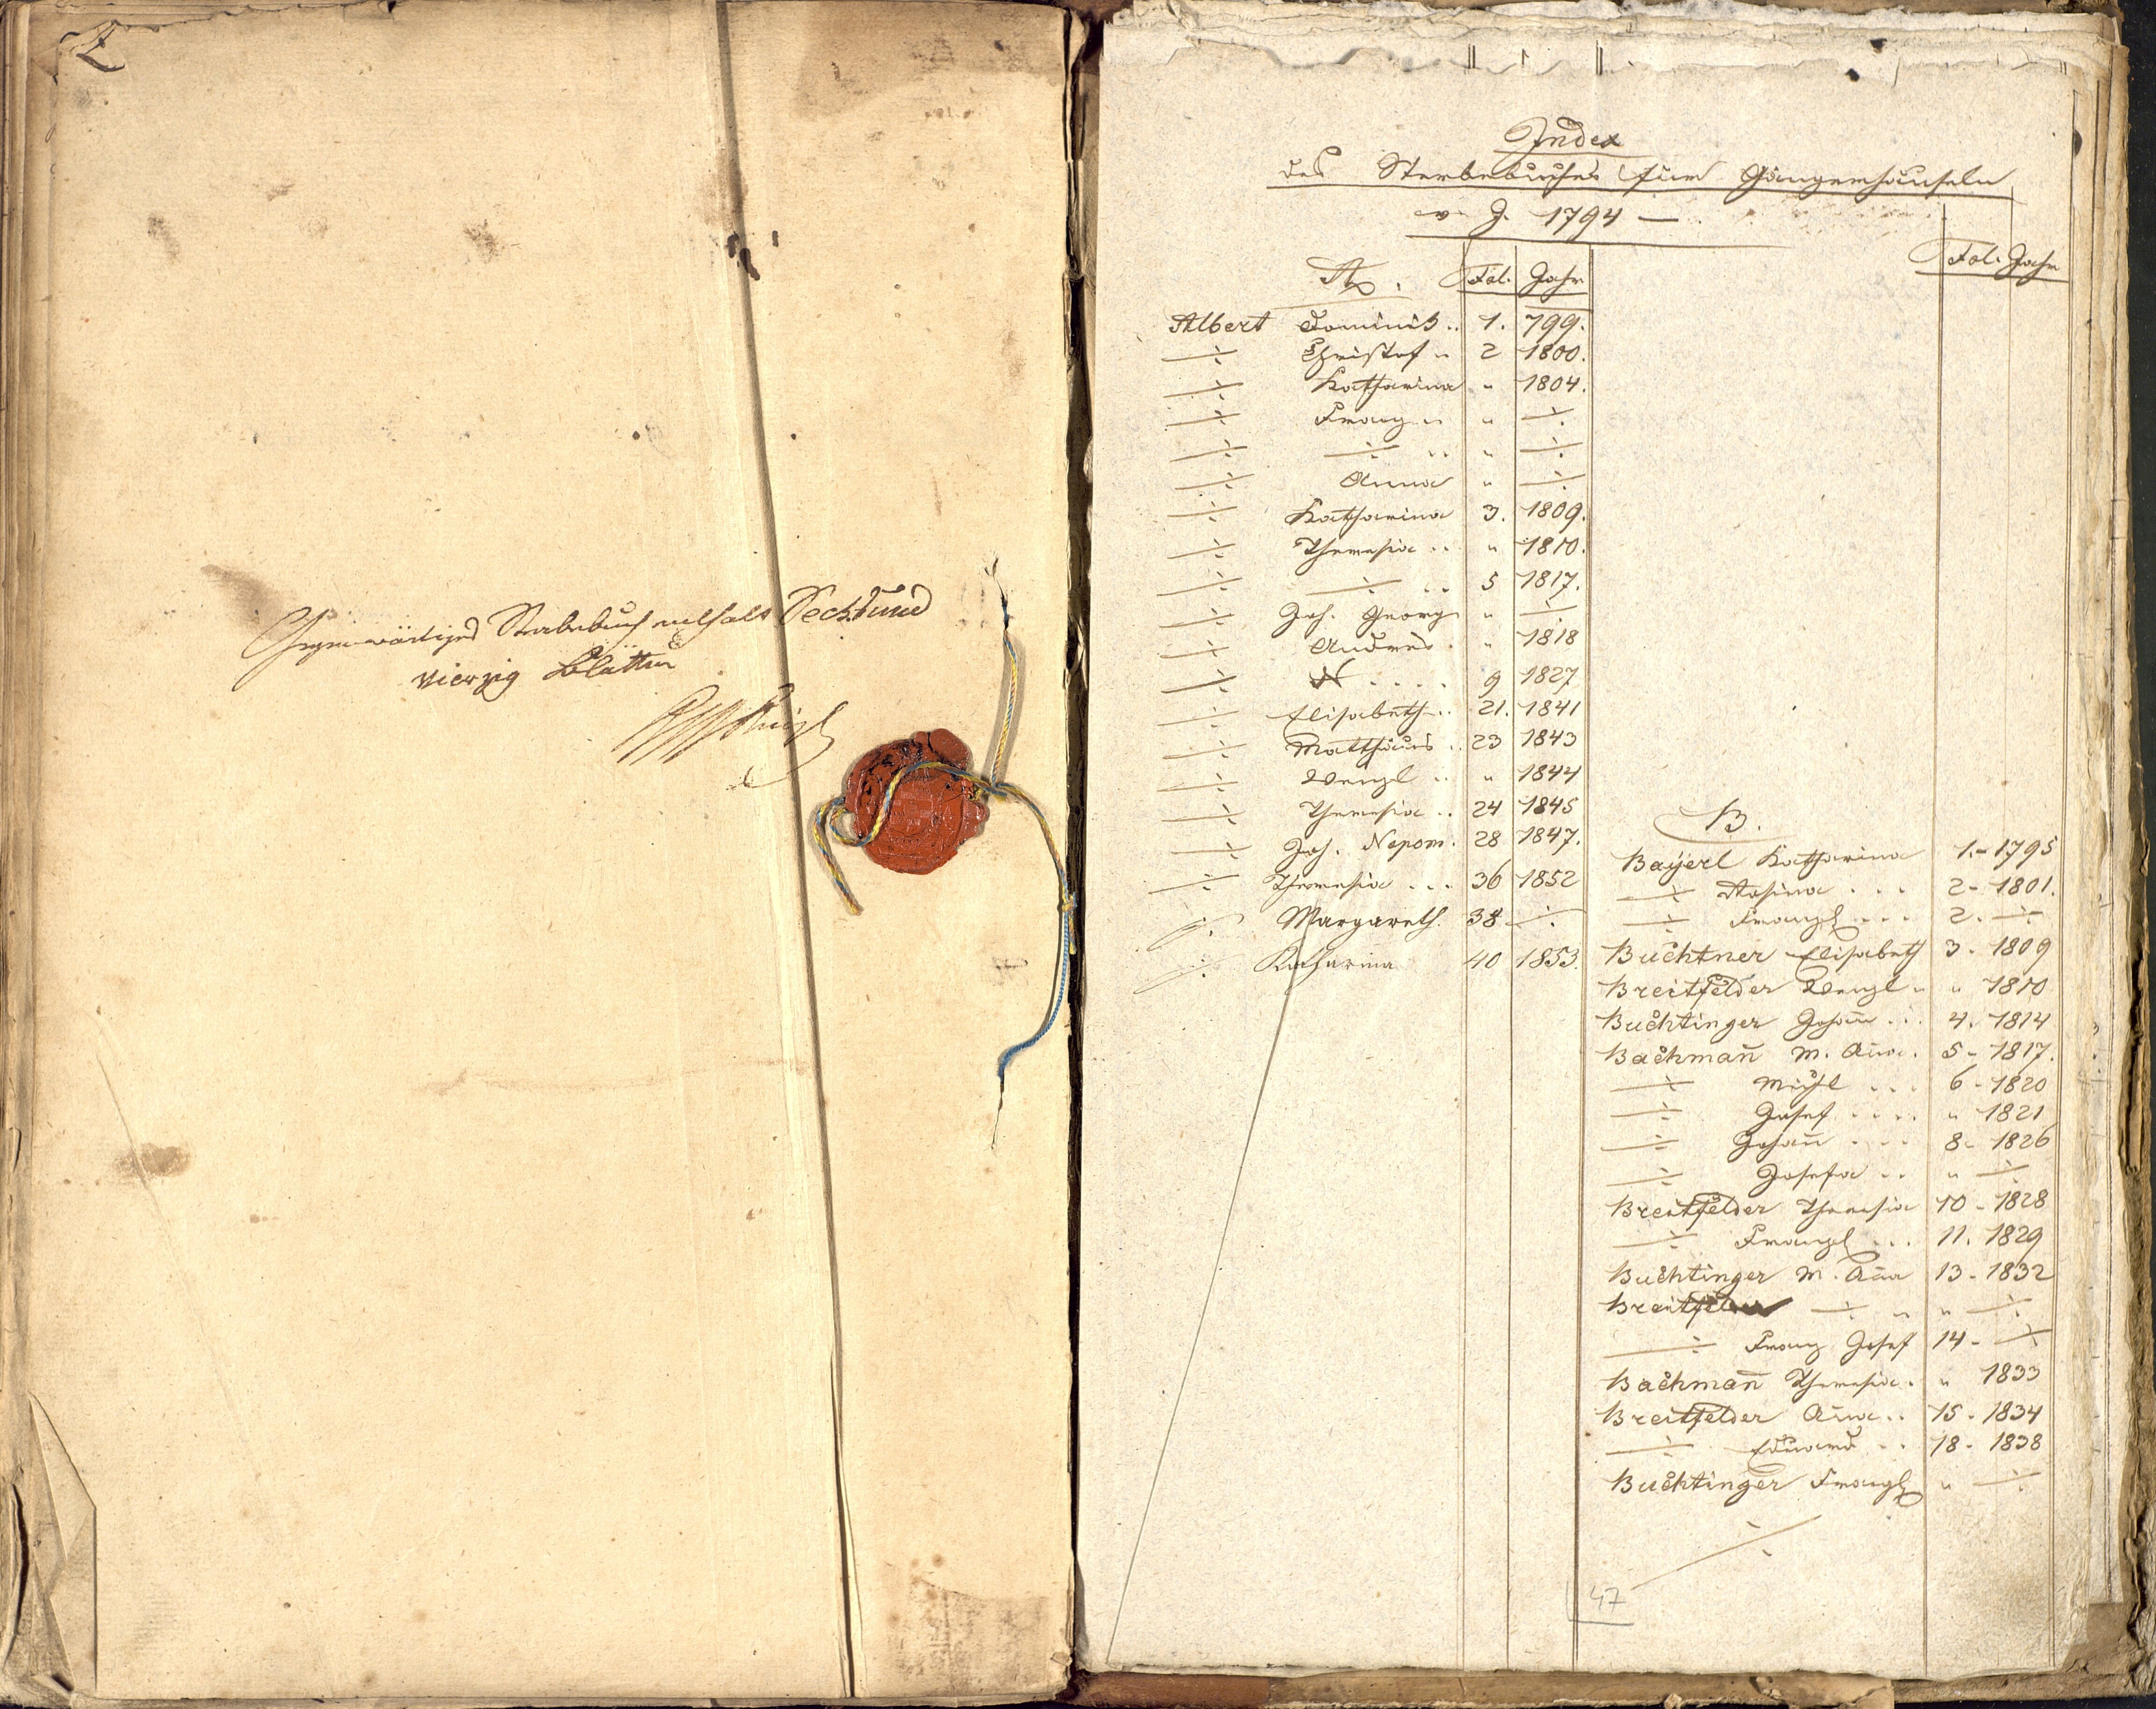 Gegenwärtiges Sterbebuch enthalt Sechs und
vierzig Blätter
Index
des Sterbebuches für Gängerhäuseln
v. J. 1794 —
A. Fol. Jahr
Albert Dominik .. 1. 799.
÷ Christof " 2 1800.
÷ Katharina " 1804.
÷ Franz .. " ÷
÷ ÷ .. " ÷
÷ Anna " ÷
÷ Katharina 3. 1809.
÷ Theresia .. " 1810.
÷ ÷ .. 5 1817.
÷ Joh. Georg " ÷
÷ Andres . " 1818
÷ N .... 9 1827
÷ Elisabeth .. 21. 1841
÷ Matthäus .. 23 1843
÷ Wenzl .. " 1844
÷ Theresia .. 24 1845
÷ Joh. Nepom. 28 1847.
÷ Theresia ... 36 1852
÷ Margareth. 38 ÷
÷ Katharina 40 1853.
Fol. Jahr
B.
Bayerl Katharina 1.- 1795
÷ Rosina ... 2- 1801.
÷ Franzl ... 2. ÷
Buchtner Elisabeth 3- 1809
Breitfelder Wenzl " " 1810
Buchtinger Johañ ... 4. 1814
Bachmañ M. Aña. 5- 1817.
÷ Michl ... 6- 1820
÷ Josef .... " 1821
÷ Johañ ... 8- 1826
÷ Josefa .. " ÷
Breitfelder Theresia 10- 1828
÷ Franzl ... 11. 1829
Buchtinger M. Aña 13- 1832
Breitfelder ÷ " " ÷
÷ Franz Josef 14- ÷
Bachmañ Theresia . " 1833
Breitfelder Aña .. 15- 1834
÷ Eduard .. 18- 1838
Buchtinger Franzl " ÷
÷
47